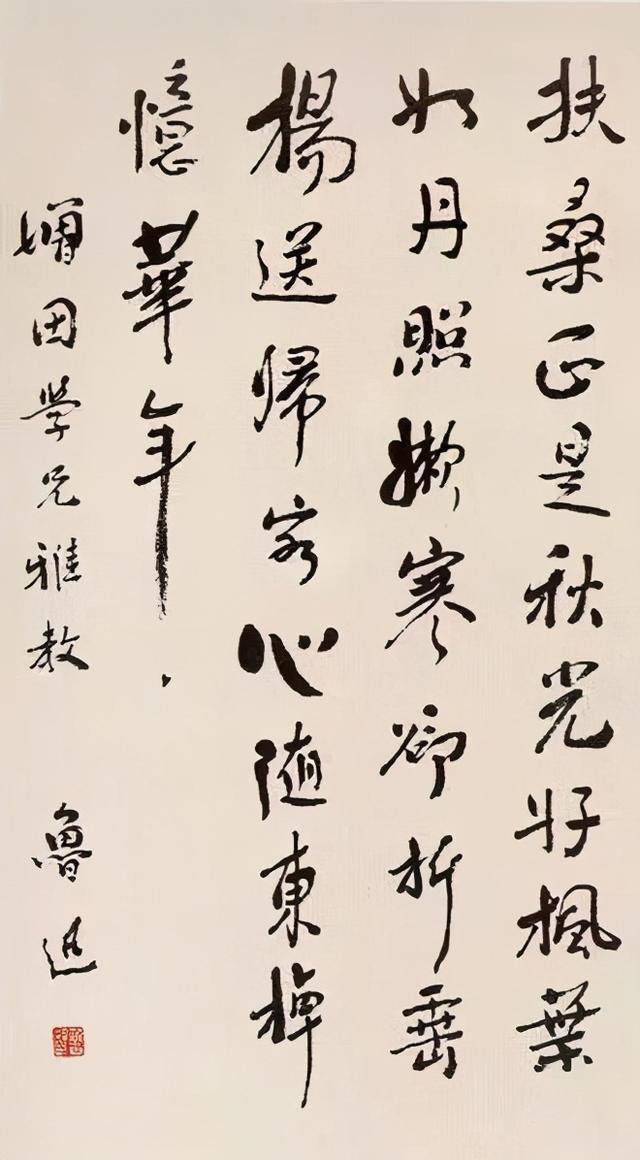 扶桑正是秋光好楓葉
如丹照嫩寒卻折垂
楊送歸客心隨東棹
憶華年
增田学兄雅教
魯迅